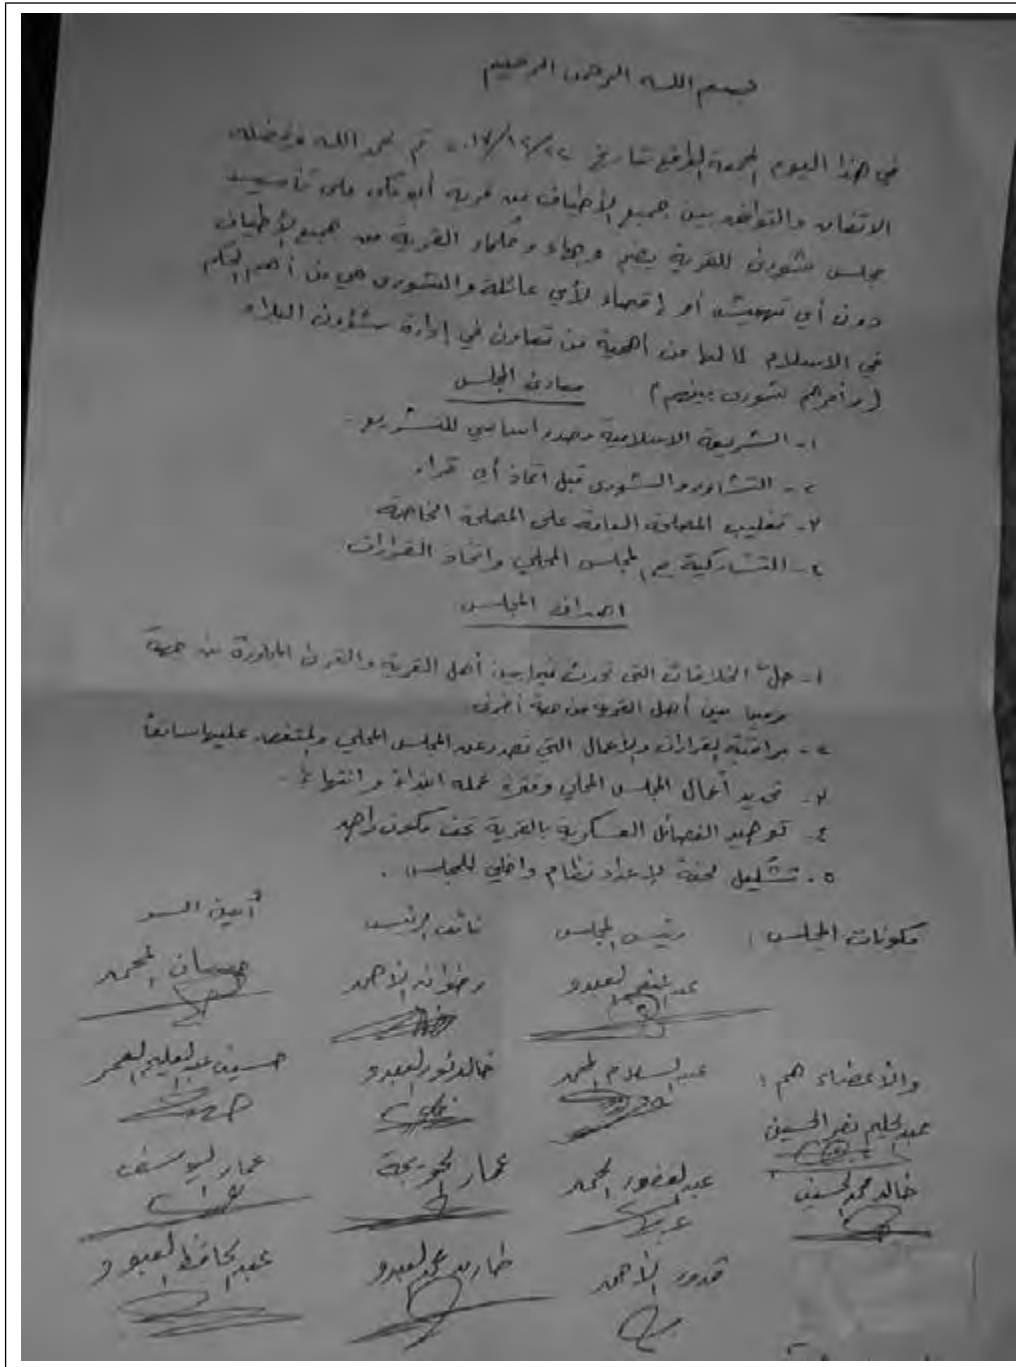 بسم الله الرحمن الرحيم
في هذا اليوم الجمعة الواقع بتاريخ ٢٠١٧/١٢/٢٢ تم بحمد الله وبفضله
الاتفاق والتوافق بين جميع الأطياف من قرية على تأسيس
مجلس شورى للقرية يضم وجهاء وحكماء القرية من جميع الأطياف
دون أي تهميش أو إقصاء لأي عائلة والشورى هي من أهم الحكم
في الاسلام لما لها من أهمية من تعاون في إدارة شؤون البلاد
(وأمرهم شورى بينهم) مبادئ المجلس
١- الشريعة الاسلامية مصدر اساسي للتشريع.
٢- التشاور والشورى قبل اتخاذ أي قرار
٣- تغليب المصلحة العامة على المصلحة الخاصة
٤- التشاركية مع المجلس المحلي واتخاذ القرارات
اهداف المجلس
١- حل الخلافات التي تحدث فيما بين أهل القرية والقرى المجاورة من جهة
وفيما بين أهل القرية من جهة أخرى
٢- مراقبة القرارات والأعمال التي تصدر عن المجلس المحلي عليها سابقاً
٣- تحديد أعمال المجلس المحلي وفترة عمله ابتداء وانتهاء.
٤- توحيد الفصائل العسكرية بالقرية تحت مكون واحد
٥- تشكيل لجنة لإعداد نظام داخلي للمجلس.
مكونات المجلس: رئيس المجلس نائب الرئيس أمين السر
عبد المنعم العبدو رضوان الأحمد حسان المحمد
والأعضاء هم: عبد السلام المحمد خالد نور العبدو حسين عبد العليم العمر
عبد الحليم نصر الحسين
عبد الغفور المحمد عمار عمار اليوسف
خالد محمد الحسين
قدور الأحمد محمد العبدو عبد الحافظ العبدو